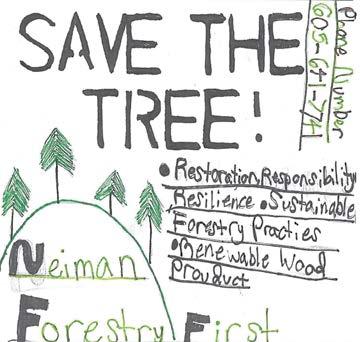 SAVE THE
TREE!
Phone Number
605-641-7741
• Restoration, Responsibility
Resilience • Sustainable
Forestry Practies
• Renewable Wood
Prouduct
Neiman
Forestry First